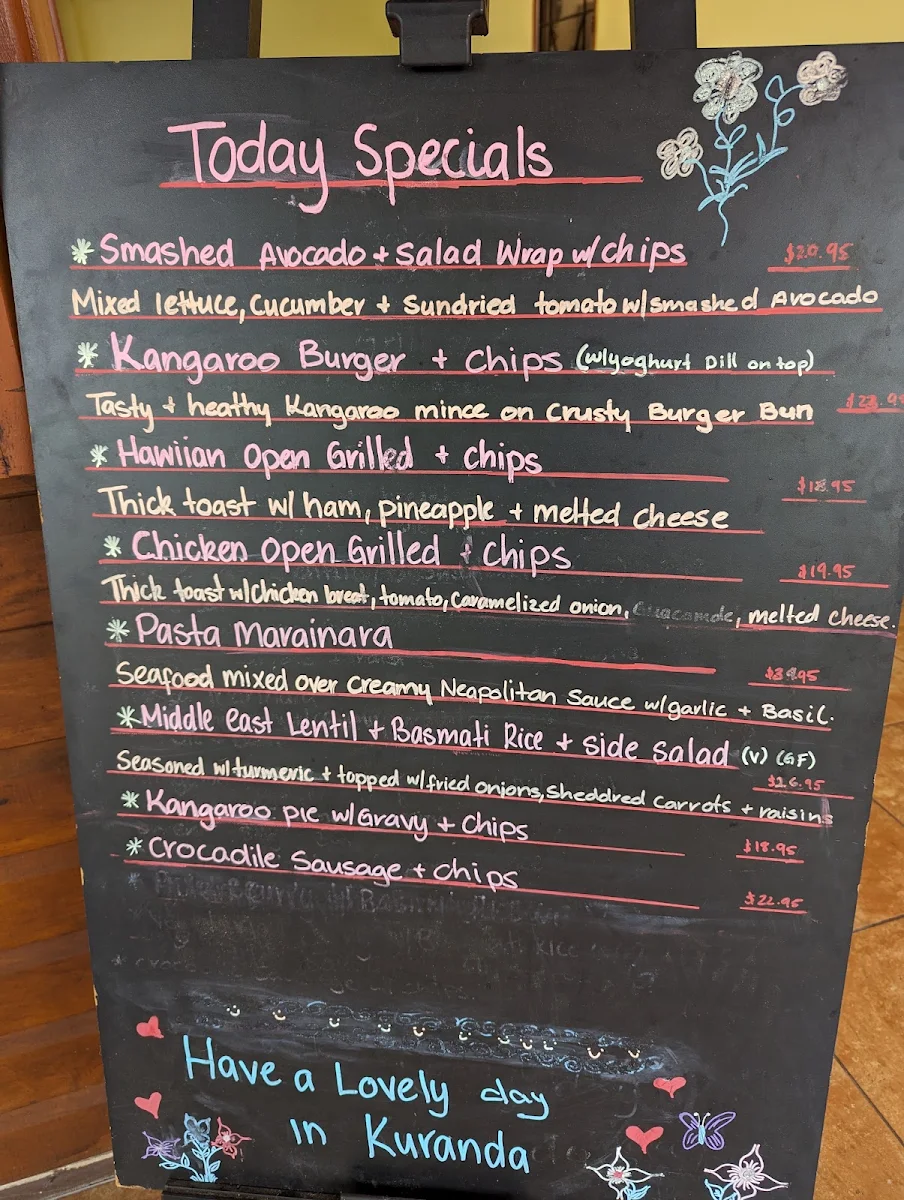 Today Specials
* Smashed Avocado + Salad Wrap w/chips $20.95
Mixed lettuce, Cucumber + Sundried tomato w/smashed Avocado
* Kangaroo Burger + chips (w/yoghurt Dill on top)
Tasty + heathy Kangaroo mince on Crusty Burger Bun
* Hawiian Open Grilled + chips
$18.95
Thick toast w/ ham, pineapple + melted cheese
* Chicken Open Grilled + chips
$19.95
Thick toast w/chicken breat, tomato, Caramelized onion, Guacamole, melted cheese.
* Pasta Marainara
Seafood mixed over creamy Neapolitan Sauce w/garlic + Basil.
* Middle east Lentil + Basmati Rice + side salad (V) (GF)
$26.95
Seasoned w/turmeric + topped w/fried onions, Sheddred carrots + raisins
* Kangaroo pie w/Gravy + chips
$18.95
* Crocadile Sausage + chips
$22.95
Have a Lovely day
in Kuranda